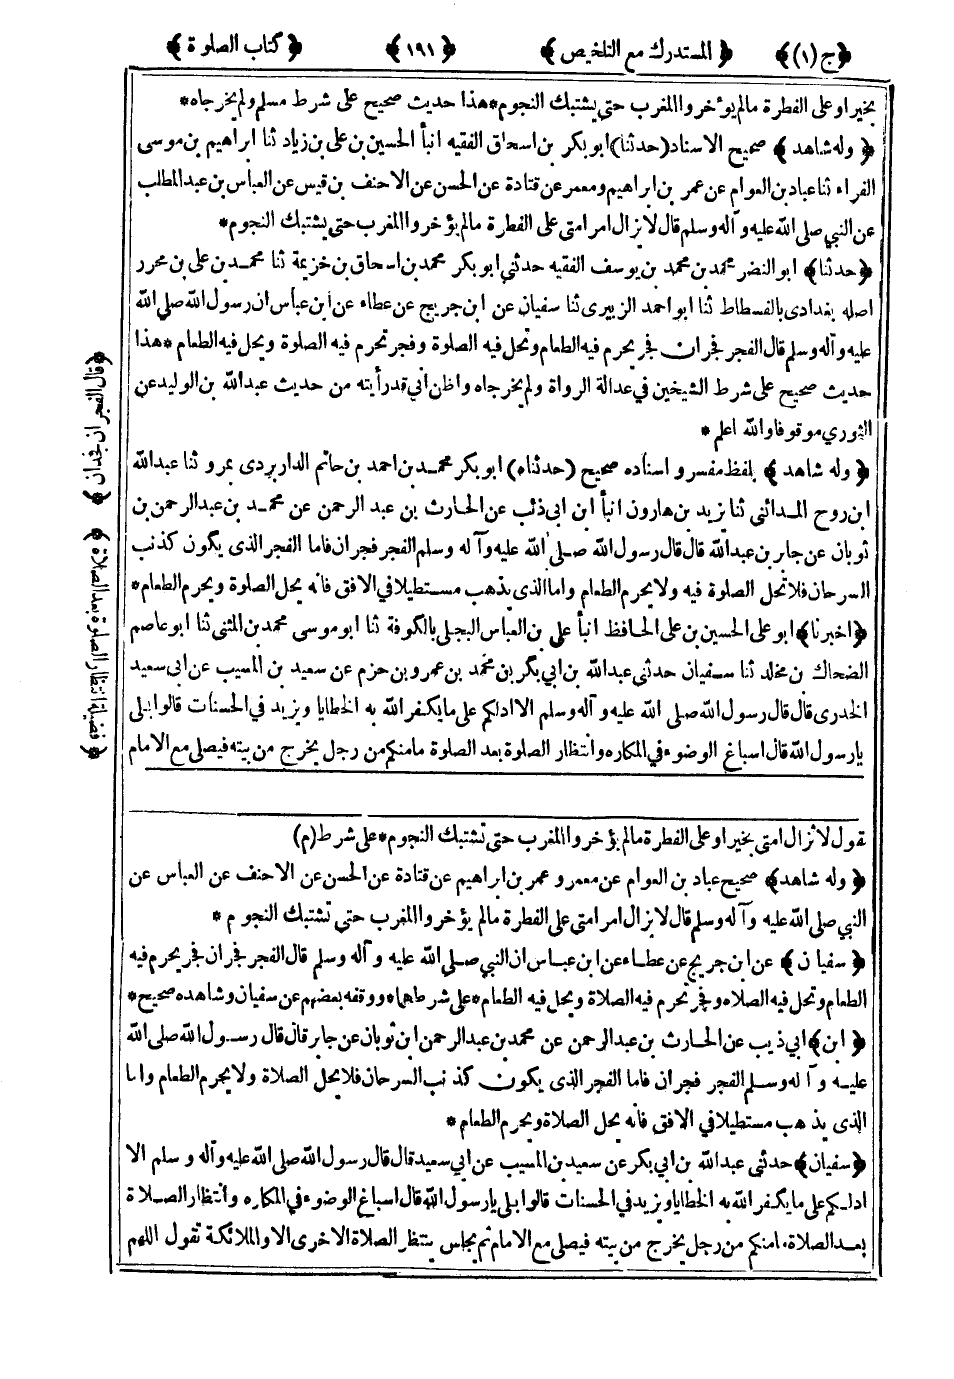 ﴿ج (١)﴾ ﴿المستدرك مع التلخيص﴾ ﴿١٩١﴾ ﴿كتاب الصلوة﴾
بخير او على الفطرة مالم يؤخروا المغرب حتى يشتبك النجوم * هذا حديث صحيح على شرط مسلم ولم يخرجاه *
﴿وله شاهد﴾ صحيح الاسناد (حدثنا) ابو بكر بن اسحاق الفقيه انبأ الحسين بن على بن زياد ثنا ابراهيم بن موسى
الفراء ثنا عباد بن العوام عن عمر بن ابراهيم ومعمر عن قتادة عن الحسن عن الاحنف بن قيس عن العباس بن عبد المطلب
عن النبي صلى الله عليه وآله وسلم قال لا يزال امر امتى على الفطرة مالم يؤخروا المغرب حتى يشتبك النجوم *
﴿حدثنا﴾ ابو النضر محمد بن محمد بن يوسف الفقيه حدثني ابو بكر محمد بن اسحاق بن خزيمة ثنا محمد بن على بن محرر
اصله بغدادى بالفسطاط ثنا ابو احمد الزبيرى ثنا سفيان عن ابن جريج عن عطاء عن ابن عباس ان رسول الله صلى الله
عليه وآله وسلم قال الفجر فجران فجر يحرم فيه الطعام وتحل فيه الصلوة وفجر تحرم فيه الصلوة ويحل فيه الطعام * هذا
حديث صحيح على شرط الشيخين في عدالة الرواة ولم يخرجاه واظن اني قد رأيته من حديث عبد الله بن الوليد عن
الثوري موقوفا والله اعلم *
﴿وله شاهد﴾ بلفظ مفسر و اسناده صحيح (حدثناه) ابو بكر محمد بن احمد بن حاتم الداربردى بمرو ثنا عبد الله
ابن روح المدائنى ثنا يزيد بن هارون انبأ ابن ابى ذئب عن الحارث بن عبد الرحمن عن محمد بن عبد الرحمن بن
ثوبان عن جابر بن عبد الله قال قال رسول الله صلى الله عليه وآله وسلم الفجر فجران فاما الفجر الذى يكون كذنب
السرحان فلا تحل الصلوة فيه ولا يحرم الطعام واما الذى يذهب مستطيلا في الافق فانه يحل الصلوة ويحرم الطعام *
﴿اخبرنا﴾ ابو على الحسين بن على الحافظ انبأ على بن العباس البجلى بالكوفة ثنا ابو موسى محمد بن المثنى ثنا ابو عاصم
الضحاك بن مخلد ثنا سفيان حدثنى عبد الله بن ابي بكر بن محمد بن عمرو بن حزم عن سعيد بن المسيب عن ابى سعيد
الخدرى قال قال رسول الله صلى الله عليه وآله وسلم الا ادلكم على ما يكفر الله به الخطايا ويزيد في الحسنات قالوا بلى
يا رسول الله قال اسباغ الوضوء في المكاره وانتظار الصلوة بعد الصلوة ما منكم من رجل يخرج من بيته فيصلى مع الامام
﴿قال الفجر ان فجران﴾
﴿فضيلة انتظار الصلوة بعد الصلاة﴾
يقول لا تزال امتى بخير او على الفطرة مالم يؤخروا المغرب حتى تشتبك النجوم * على شرط (م)
﴿وله شاهد﴾ صحيح عباد بن العوام عن معمر و عمر بن ابراهيم عن قتادة عن الحسن عن الاحنف عن العباس عن
النبي صلى الله عليه وآله وسلم قال لا يزال امر امتى على الفطرة مالم يؤخروا المغرب حتى تشتبك النجوم *
﴿سفيان﴾ عن ابن جريج عن عطاء عن ابن عباس ان النبي صلى الله عليه وآله وسلم قال الفجر فجران فجر يحرم فيه
الطعام وتحل فيه الصلاه وفجر تحرم فيه الصلاة ويحل فيه الطعام * على شرطهما * ووقفه بعضهم عن سفيان وشاهده صحيح *
﴿ابن﴾ ابي ذيب عن الحارث بن عبد الرحمن عن محمد بن عبد الرحمن ابن ثوبان عن جابر قال قال رسول الله صلى الله
عليه وآله وسلم الفجر فجران فاما الفجر الذى يكون كذنب السرحان فلا يحل الصلاة ولا يحرم الطعام واما
الذى يذهب مستطيلا في الافق فانه يحل الصلاة ويحرم الطعام *
﴿سفيان﴾ حدثني عبد الله بن ابي بكر عن سعيد بن المسيب عن ابي سعيد قال قال رسول الله صلى الله عليه وآله وسلم الا
ادلكم على ما يكفر الله به الخطايا ويزيد في الحسنات قالوا بلى يا رسول الله قال اسباغ الوضوء في المكاره وانتظار الصلاة
بعد الصلاة. امنكم من رجل يخرج من بيته فيصلى مع الامام ثم يجلس ينتظر الصلاة الاخرى الا والملائكة تقول اللهم